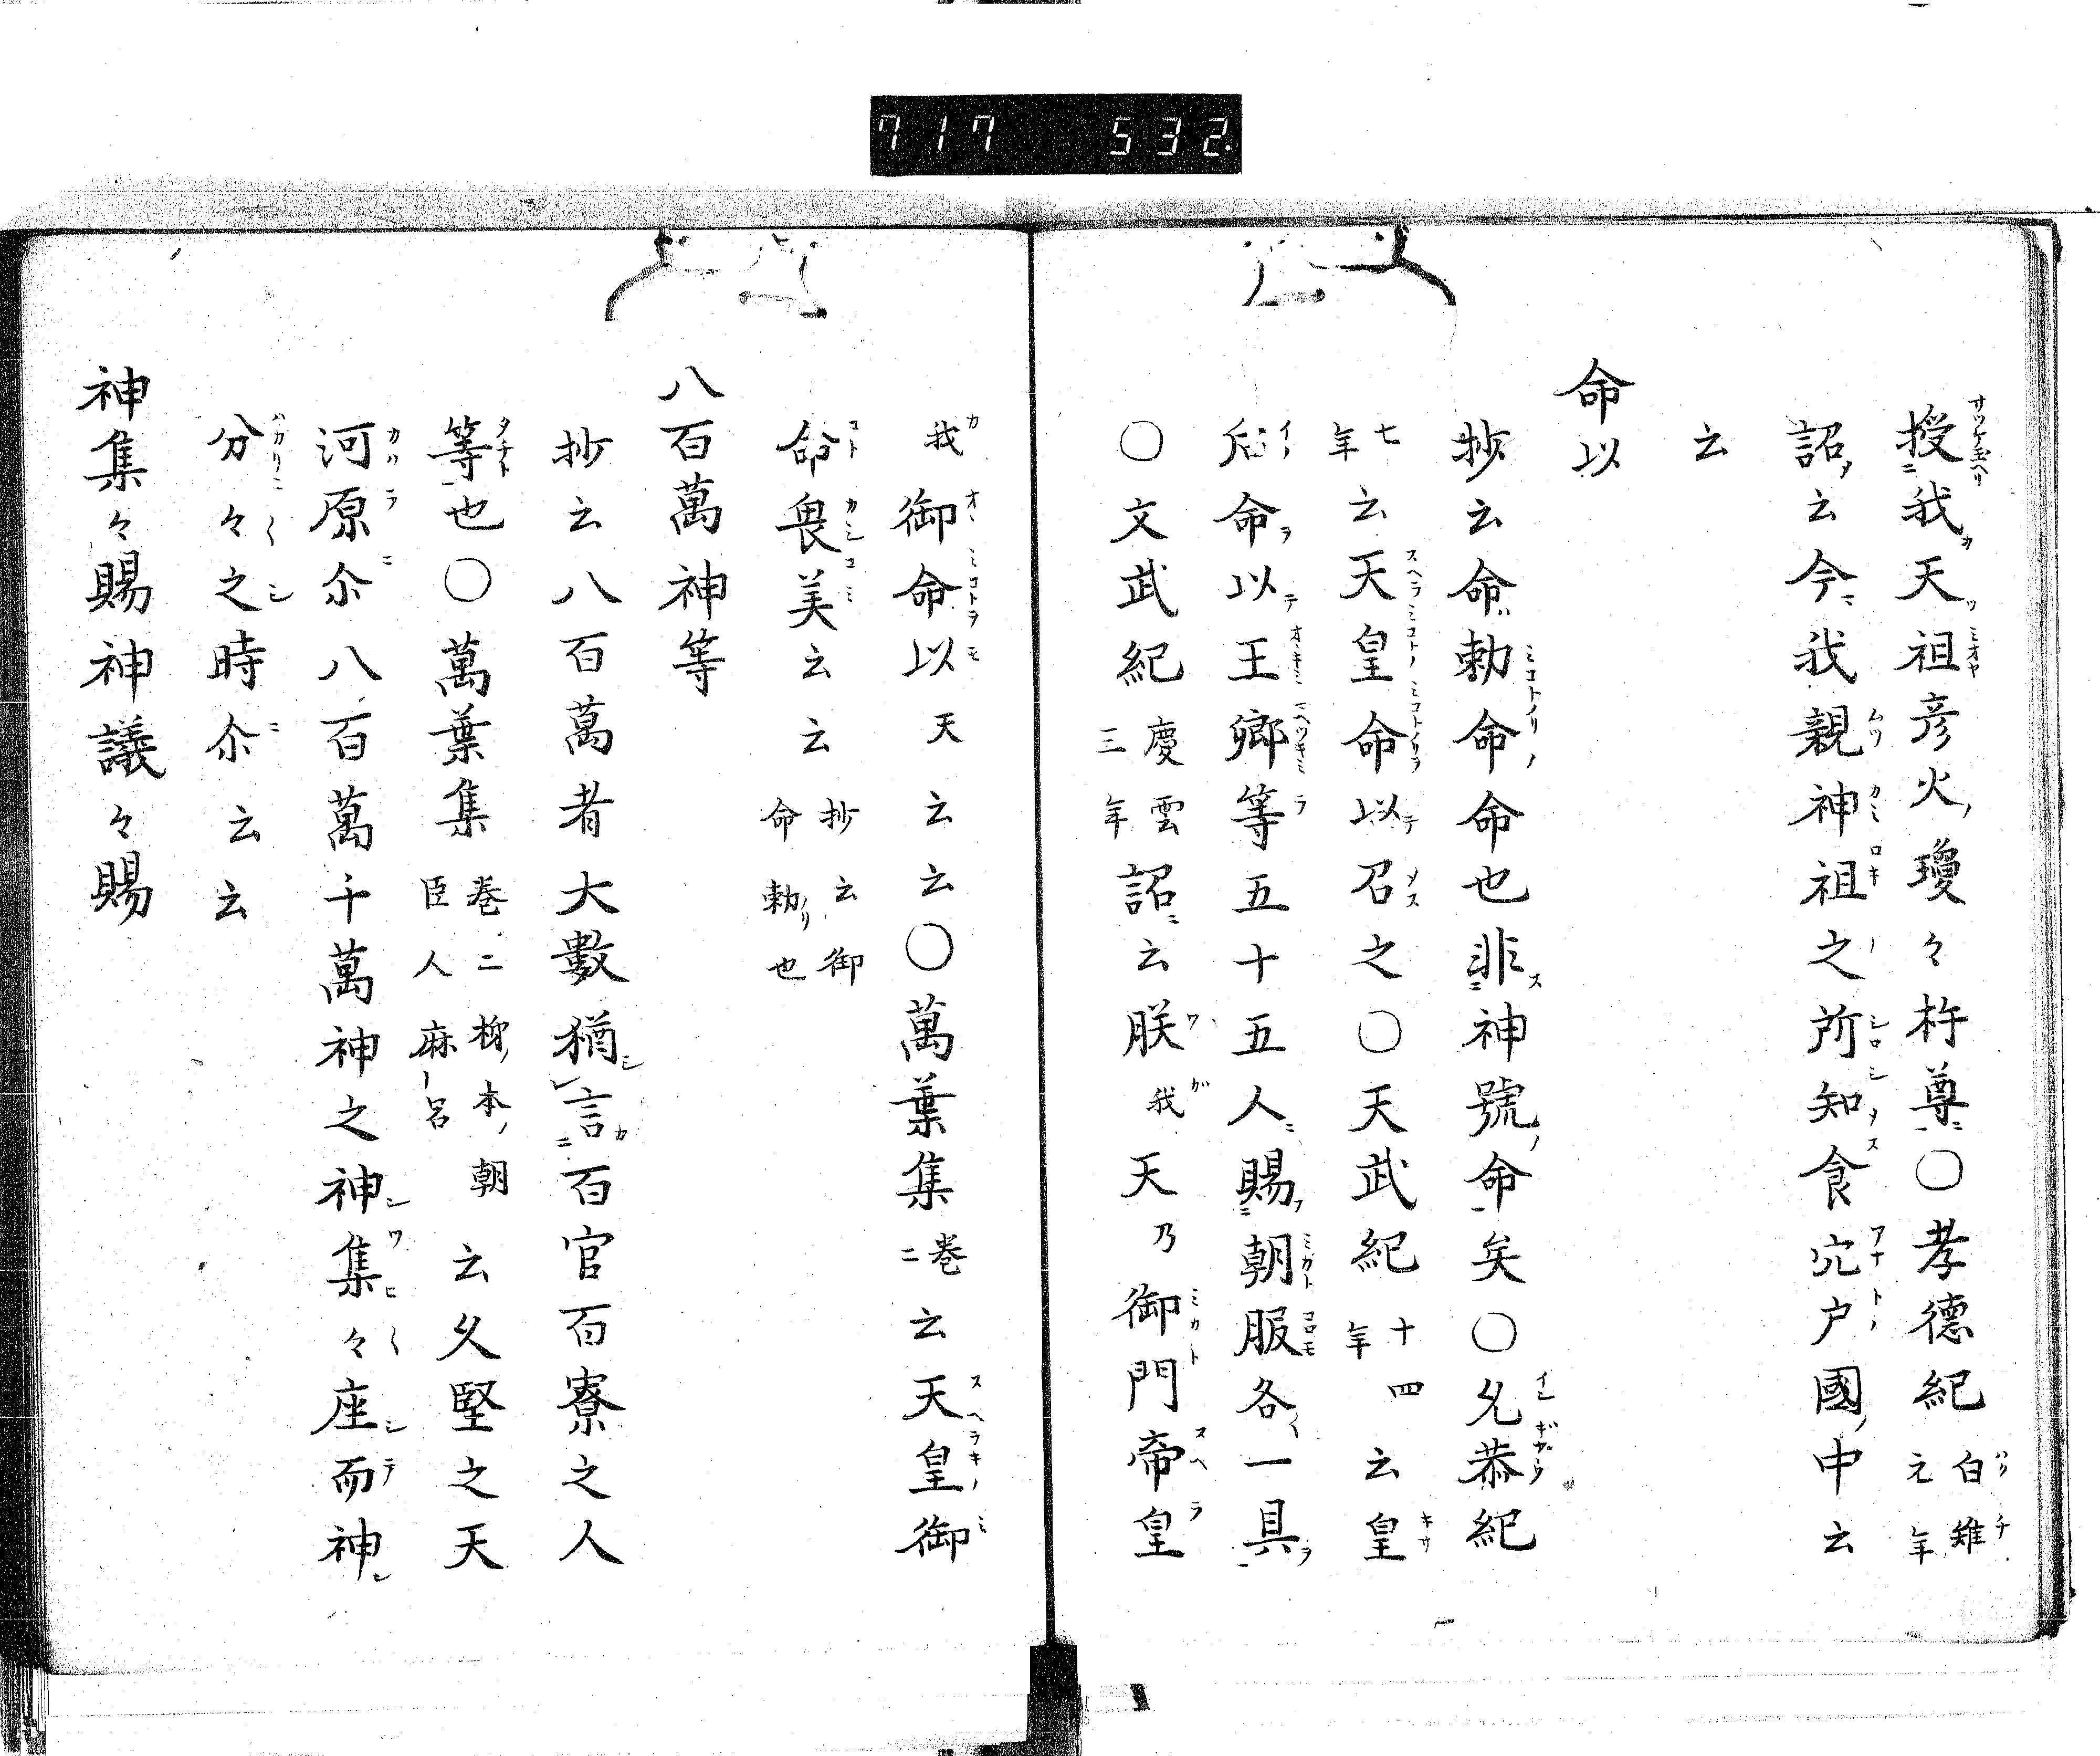 717 532.
授我天祖彦火瓊々杵尊〇孝德紀白雉元年
詔云今我親神祖之所知食穴戸國中云
云
命以
抄云命勅命命也非神號命矣〇允恭紀
七年云天皇命以召之〇天武紀十四年云皇
后命以王卿等五十五人賜朝服各一具
〇文武紀慶雲三年詔云朕我天乃御門帝皇
我御命以天云云〇萬葉集巻二云天皇御
命畏美云云抄云御命勅也
八百萬神等
抄云八百萬者大數猶言百官百寮之人
等也〇萬葉集巻二柳本朝臣人麻呂云久堅之天
河原尒八百萬千萬神之神集々座而神
分々之時尒云云
神集々賜神議々賜